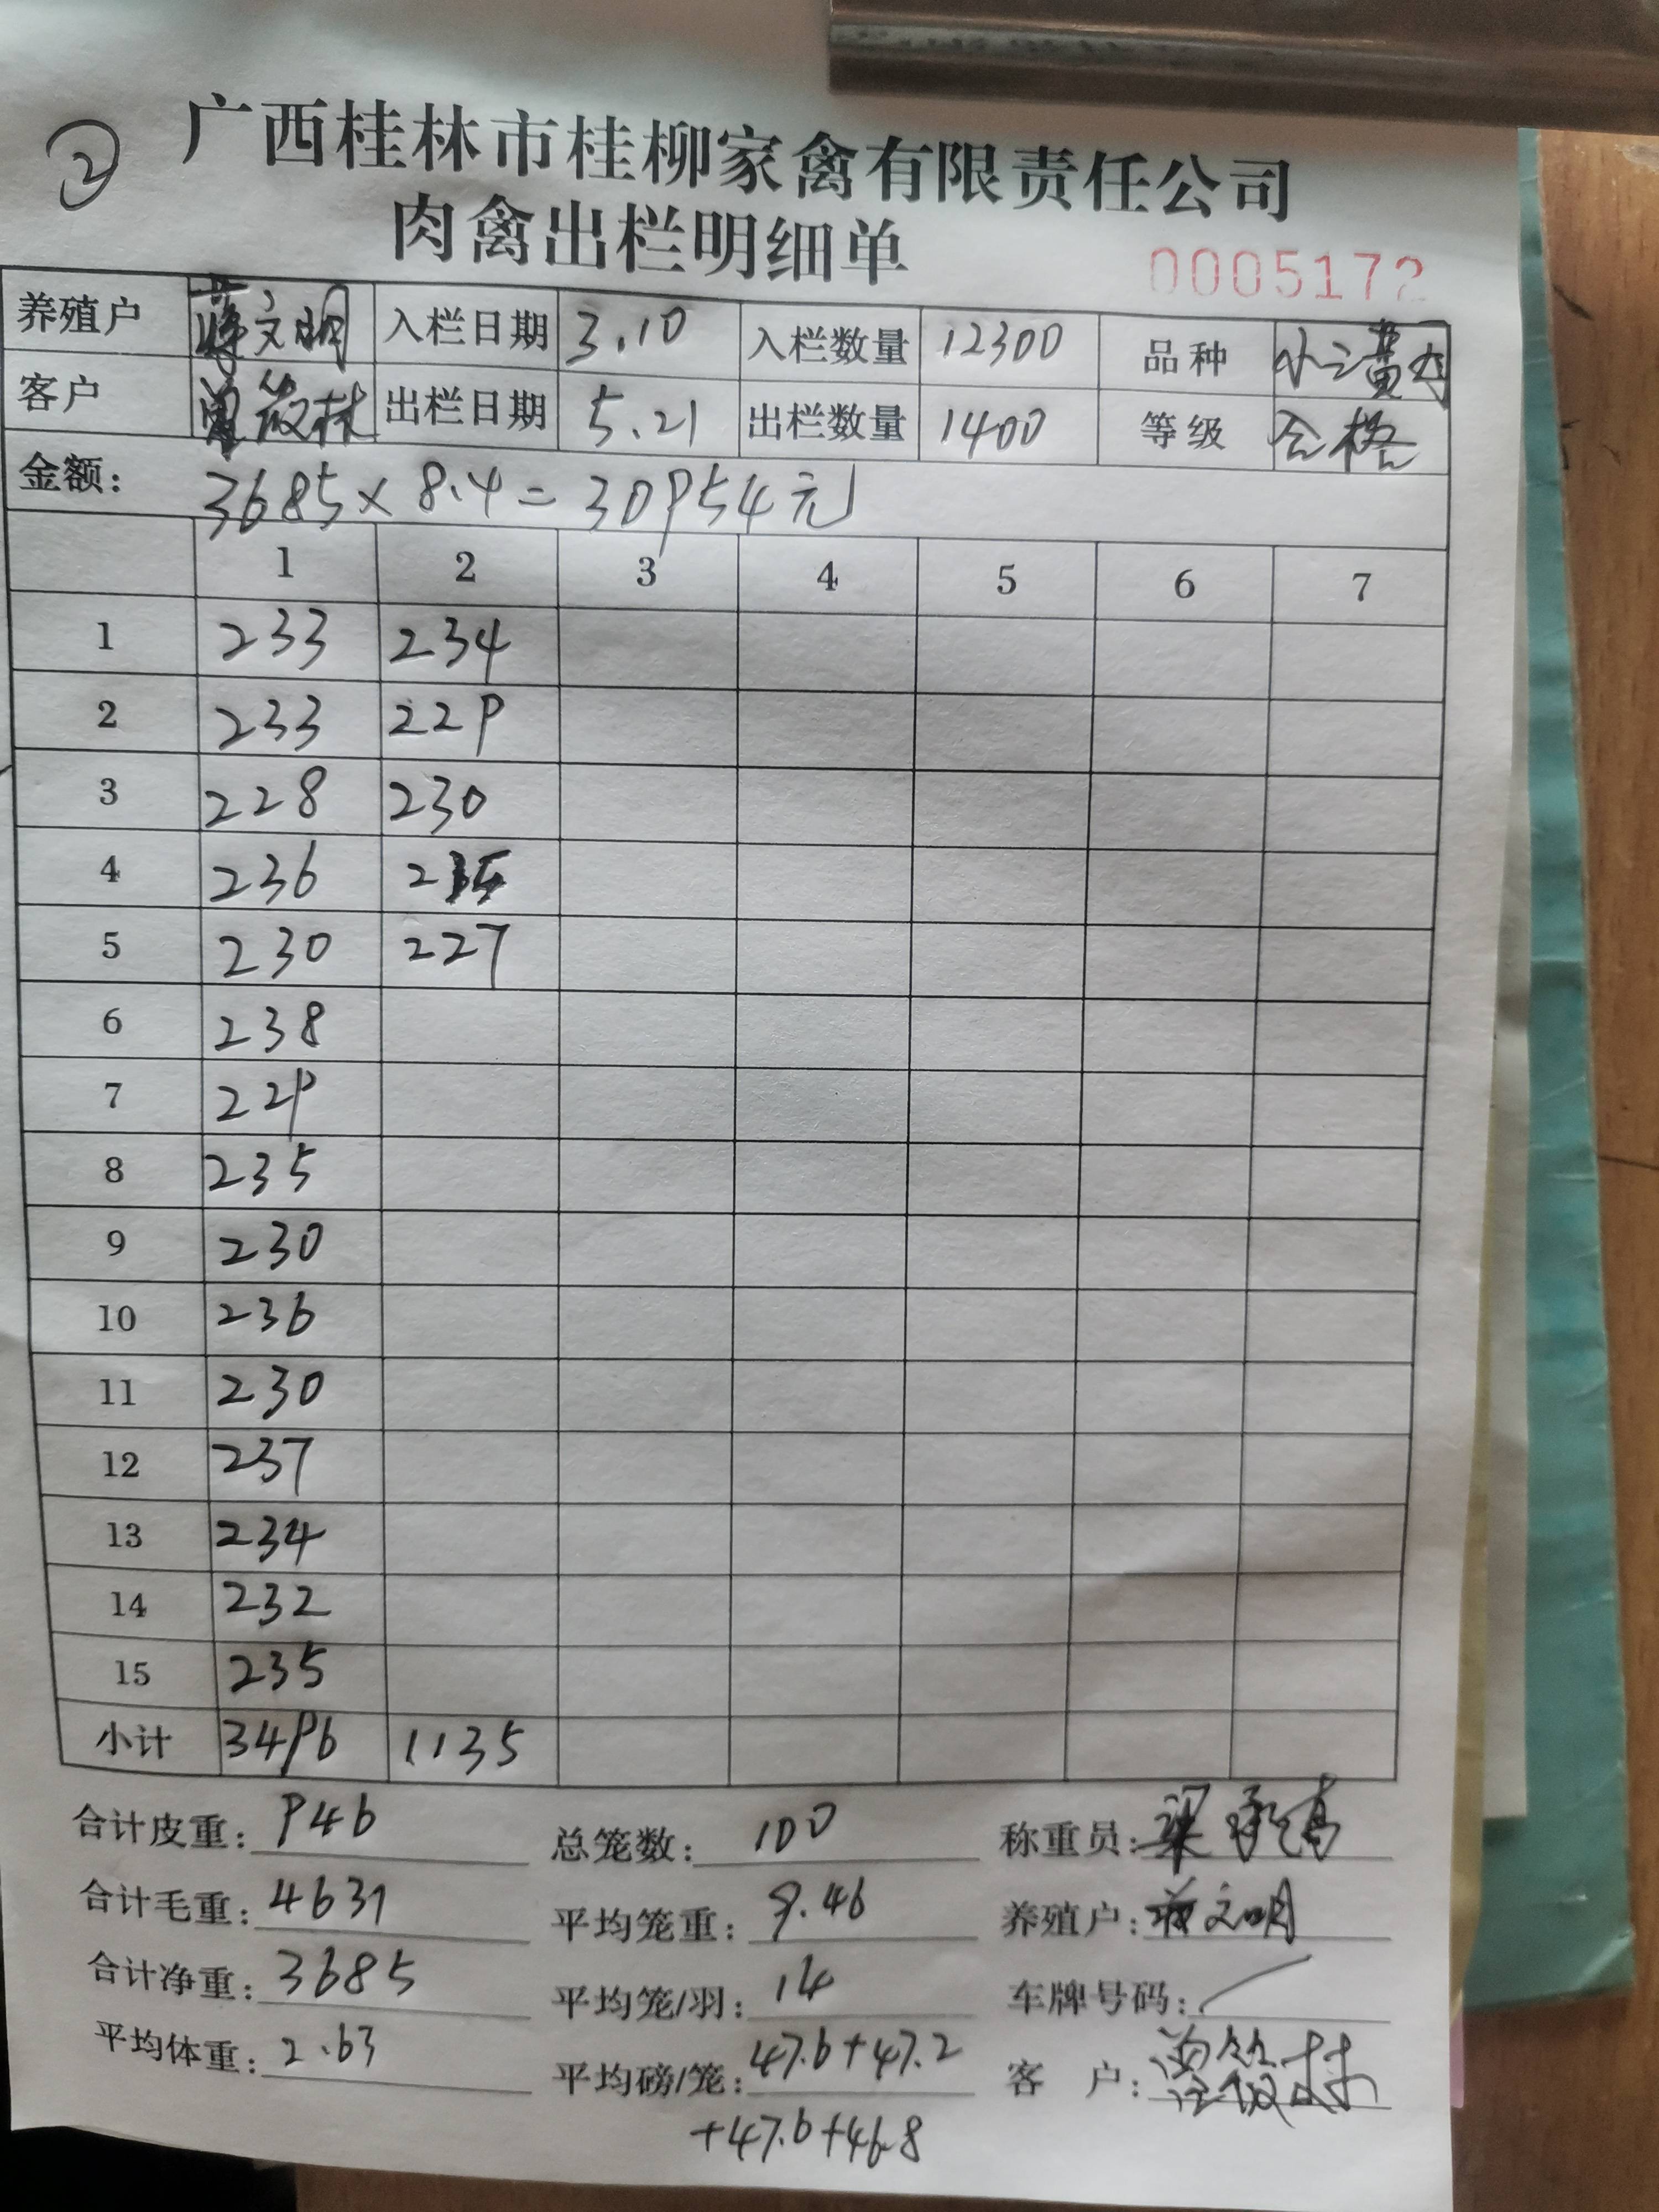 ②
广西桂林市桂柳家禽有限责任公司
肉禽出栏明细单
0005172
养殖户 蒋文明 入栏日期 3.10 入栏数量 12300 品种 小三黄
客户 出栏日期 5.21 出栏数量 1400 等级 合格
金额: 3685×8.4=30954元
1 2 3 4 5 6 7
1 233 234
2 233 229
3 228 230
4 236 215
5 230 227
6 238
7 229
8 235
9 230
10 236
11 230
12 237
13 234
14 232
15 235
小计 3496 1135
合计皮重: 946 总笼数: 100 称重员: 梁承高
合计毛重: 4631 平均笼重: 9.46 养殖户: 蒋文明
合计净重: 3685 平均笼/羽: 14 车牌号码: /
平均体重: 2.63 平均磅/笼: 47.6+47.2 客 户:
+47.6+46.8